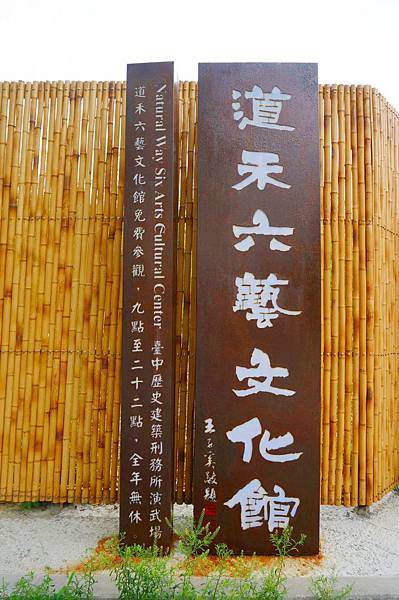 道禾六藝文化館
王 敬題
Natural Way Six Arts Cultural Center 臺中歷史建築刑務所演武場
道禾六藝文化館免費參觀，九點至二十二點，全年無休。